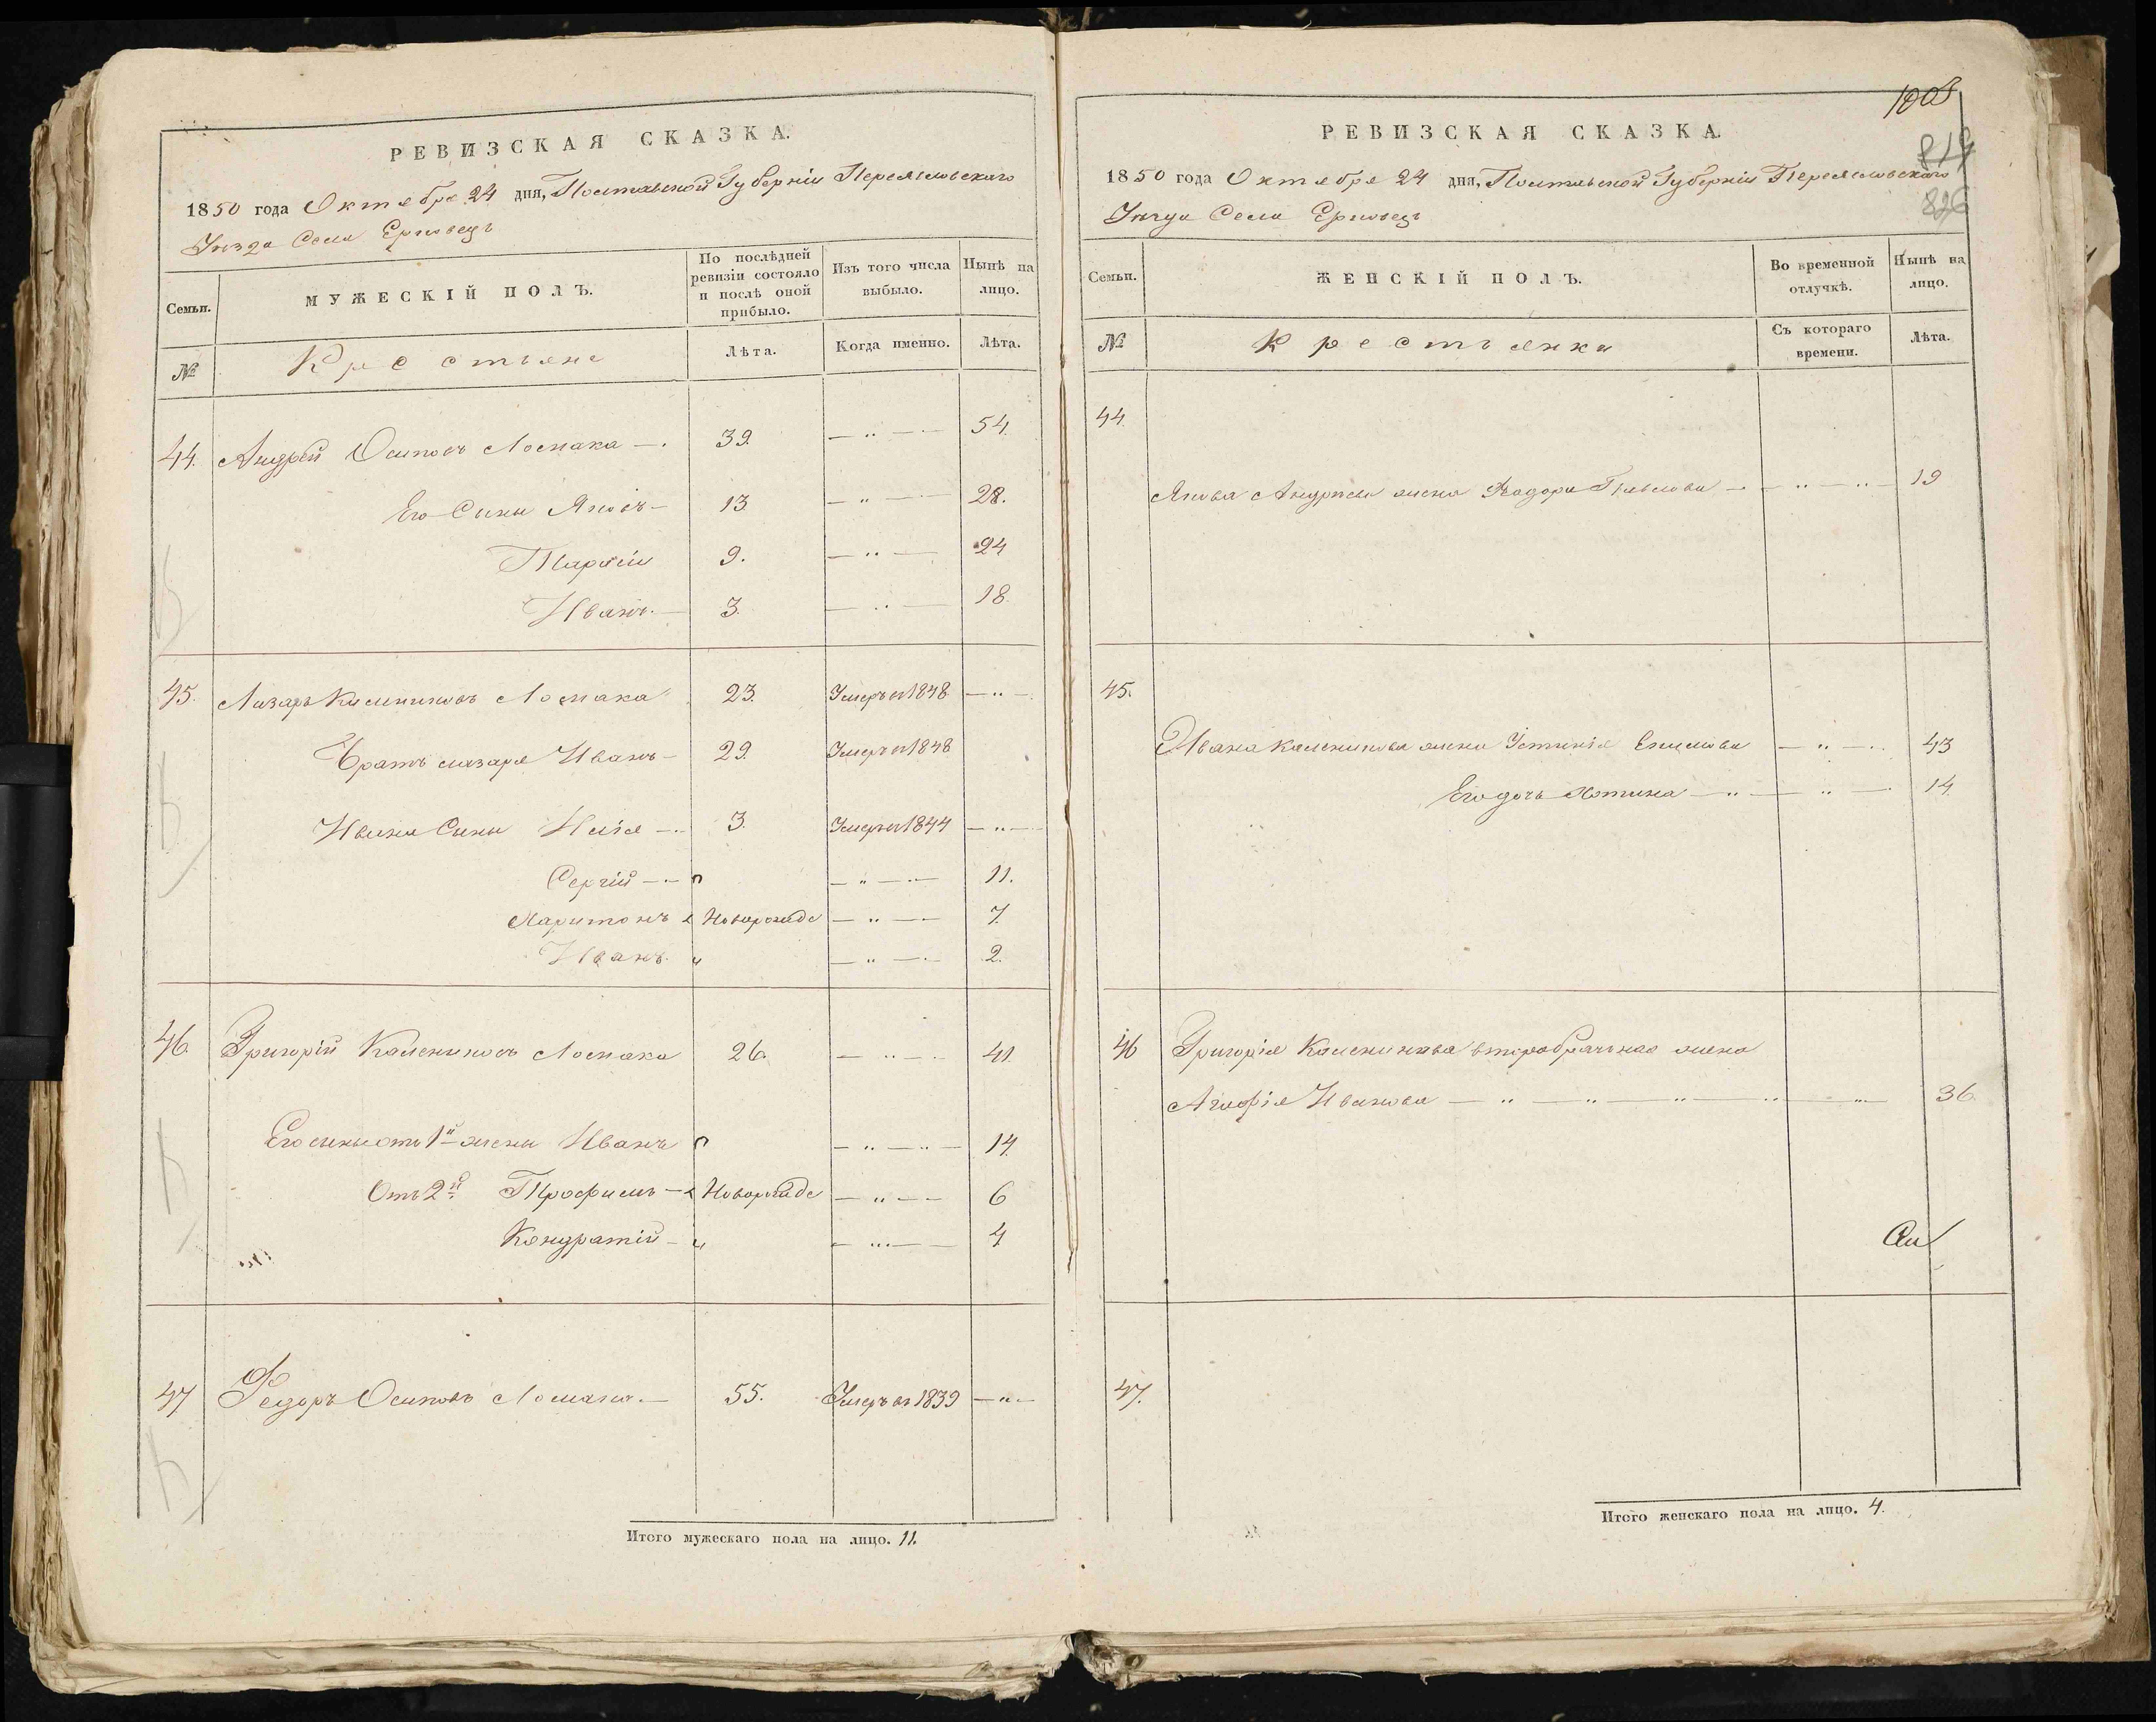 РЕВИЗСКАЯ СКАЗКА.
1850 года Октября 24 дня, Полтавской Губерніи Переяславскаго
Уѣзда Села Ерковецъ
Семьи.
МУЖЕСКІЙ ПОЛЪ.
По послѣдней ревизіи состояло и послѣ оной прибыло.
Изъ того числа выбыло.
Нынѣ на лицо.
№
Крестьяне
Лѣта.
Когда именно.
Лѣта.
44. Андрей Осиповъ Ломака 39. 54.
Его Сыны Яковъ 13. 28.
9. 24
Иванъ 3. 18.
45. Лазарь Калениковъ Ломака 23. Умеръ въ 1848
Братъ Лазаря Иванъ 29. Умеръ въ 1848
Ивана Сыны Илія 3. Умеръ въ 1844
Сергій 11.
Харитонъ Новорожде 7.
Иванъ 2.
46. Григорій Калениковъ Ломака 26. 41.
Его сыны отъ 1й жены Иванъ 14.
Отъ 2й Трофимъ Новорожде 6
Кондратій 4
47 Федоръ Осиповъ Ломака 55. Умеръ въ 1839
Итого мужескаго пола на лицо. 11.
819
826
РЕВИЗСКАЯ СКАЗКА.
1850 года Октября 24 дня, Полтавской Губерніи Переяславскаго
Уѣзда Села Ерковецъ
Семьи.
ЖЕНСКІЙ ПОЛЪ.
Во временной отлучкѣ.
Нынѣ на лицо.
№
Крестьянки
Съ котораго времени.
Лѣта.
44.
Якова Андреева жена Федора Павлова 19
45.
Ивана Каленикова жена Устинія 43
Его дочь Хотина 14
46 Григорія Каленикова второбрачная жена
Агафія Иванова 36.
47.
Итого женскаго пола на лицо. 4.